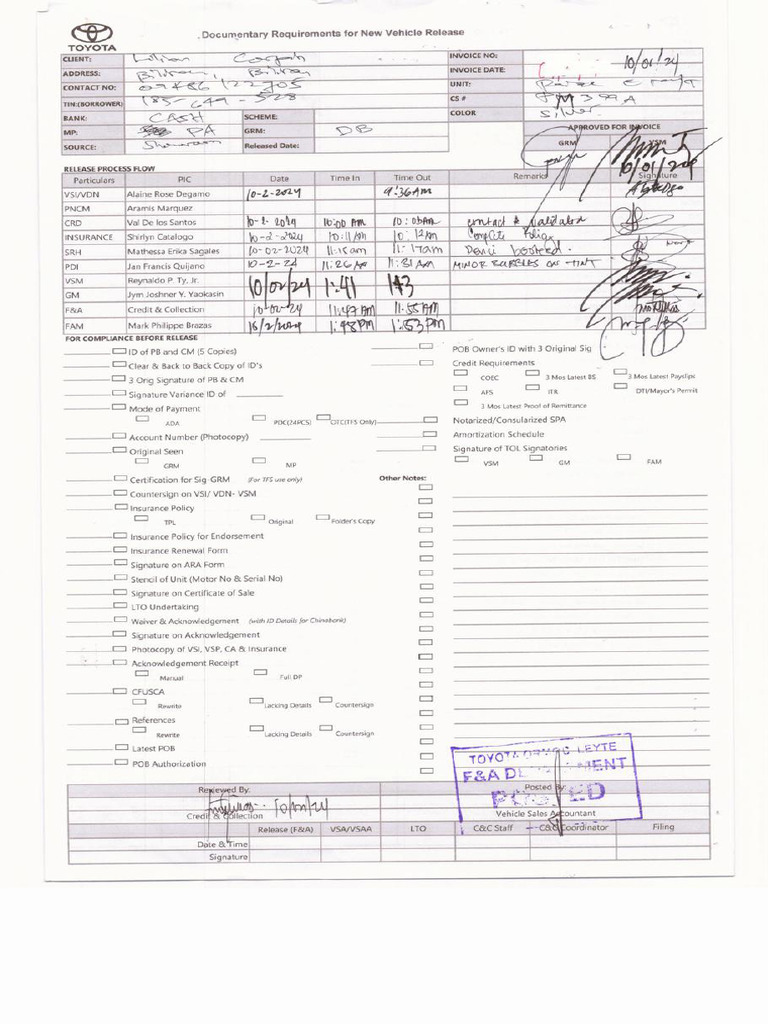 TOYOTA
Documentary Requirements for New Vehicle Release
CLIENT: Lilian
ADDRESS: Biliran, Biliran
CONTACT NO:
TIN:(BORROWER) 185-649-528
BANK: CASH SCHEME:
MP: PA GRM: DB
SOURCE: Showroom Released Date:
INVOICE NO:
INVOICE DATE: 10/01/24
UNIT:
CS #
COLOR Silver
APPROVED FOR INVOICE
GRM VSM
10/01/24
RELEASE PROCESS FLOW
Particulars PIC Date Time In Time Out Remarks Signature
VSI/VDN Alaine Rose Degamo 10-2-2024 9:36AM
PNCM Aramis Marquez
CRD Val De los Santos 10-2-2024 10:00 AM 10:08AM contact # validated
INSURANCE Shirlyn Catalogo 10-2-2024 10:11AM 10:12AM Complete Policy
SRH Mathessa Erika Sagales 10-02-2024 11:15am 11:17am booked.
PDI Jan Francis Quijano 10-2-24 11:26AM 11:31AM MINOR BUBBLES ON TINT
VSM Reynaldo P. Ty, Jr. 10/02/24 1:41 1:43
GM Jym Joshner Y. Yaokasin
F&A Credit & Collection 10-02-24 11:47AM 11:55AM
FAM Mark Philippe Brazas 1:48PM 1:53PM
FOR COMPLIANCE BEFORE RELEASE
ID of PB and CM (5 Copies)
Clear & Back to Back Copy of ID's
3 Orig Signature of PB & CM
Signature Variance ID of
Mode of Payment
ADA PDC(24PCS) OTC(TFS Only)
Account Number (Photocopy)
Original Seen
GRM MP
Certification for Sig-GRM (For TFS use only)
Countersign on VSI/ VDN- VSM
Insurance Policy
TPL Original Folder's Copy
Insurance Policy for Endorsement
Insurance Renewal Form
Signature on ARA Form
Stencil of Unit (Motor No & Serial No)
Signature on Certificate of Sale
LTO Undertaking
Waiver & Acknowledgement (with ID Details for Chinabank)
Signature on Acknowledgement
Photocopy of VSI, VSP, CA & Insurance
Acknowledgement Receipt
Manual Full DP
CFUSCA
Rewrite Lacking Details Countersign
References
Rewrite Lacking Details Countersign
Latest POB
POB Authorization
POB Owner's ID with 3 Original Sig
Credit Requirements
COEC 3 Mos Latest BS 3 Mos Latest Payslips
AFS ITR DTI/Mayor's Permit
3 Mos Latest Proof of Remittance
Notarized/Consularized SPA
Amortization Schedule
Signature of TOL Signatories
VSM GM FAM
Other Notes:
TOYOTA ORMOC LEYTE
F&A DEPARTMENT
POSTED
Reviewed By: Posted By:
10/02/24
Credit & Collection Vehicle Sales Accountant
Release (F&A) VSA/VSAA LTO C&C Staff C&C Coordinator Filing
Date & Time
Signature